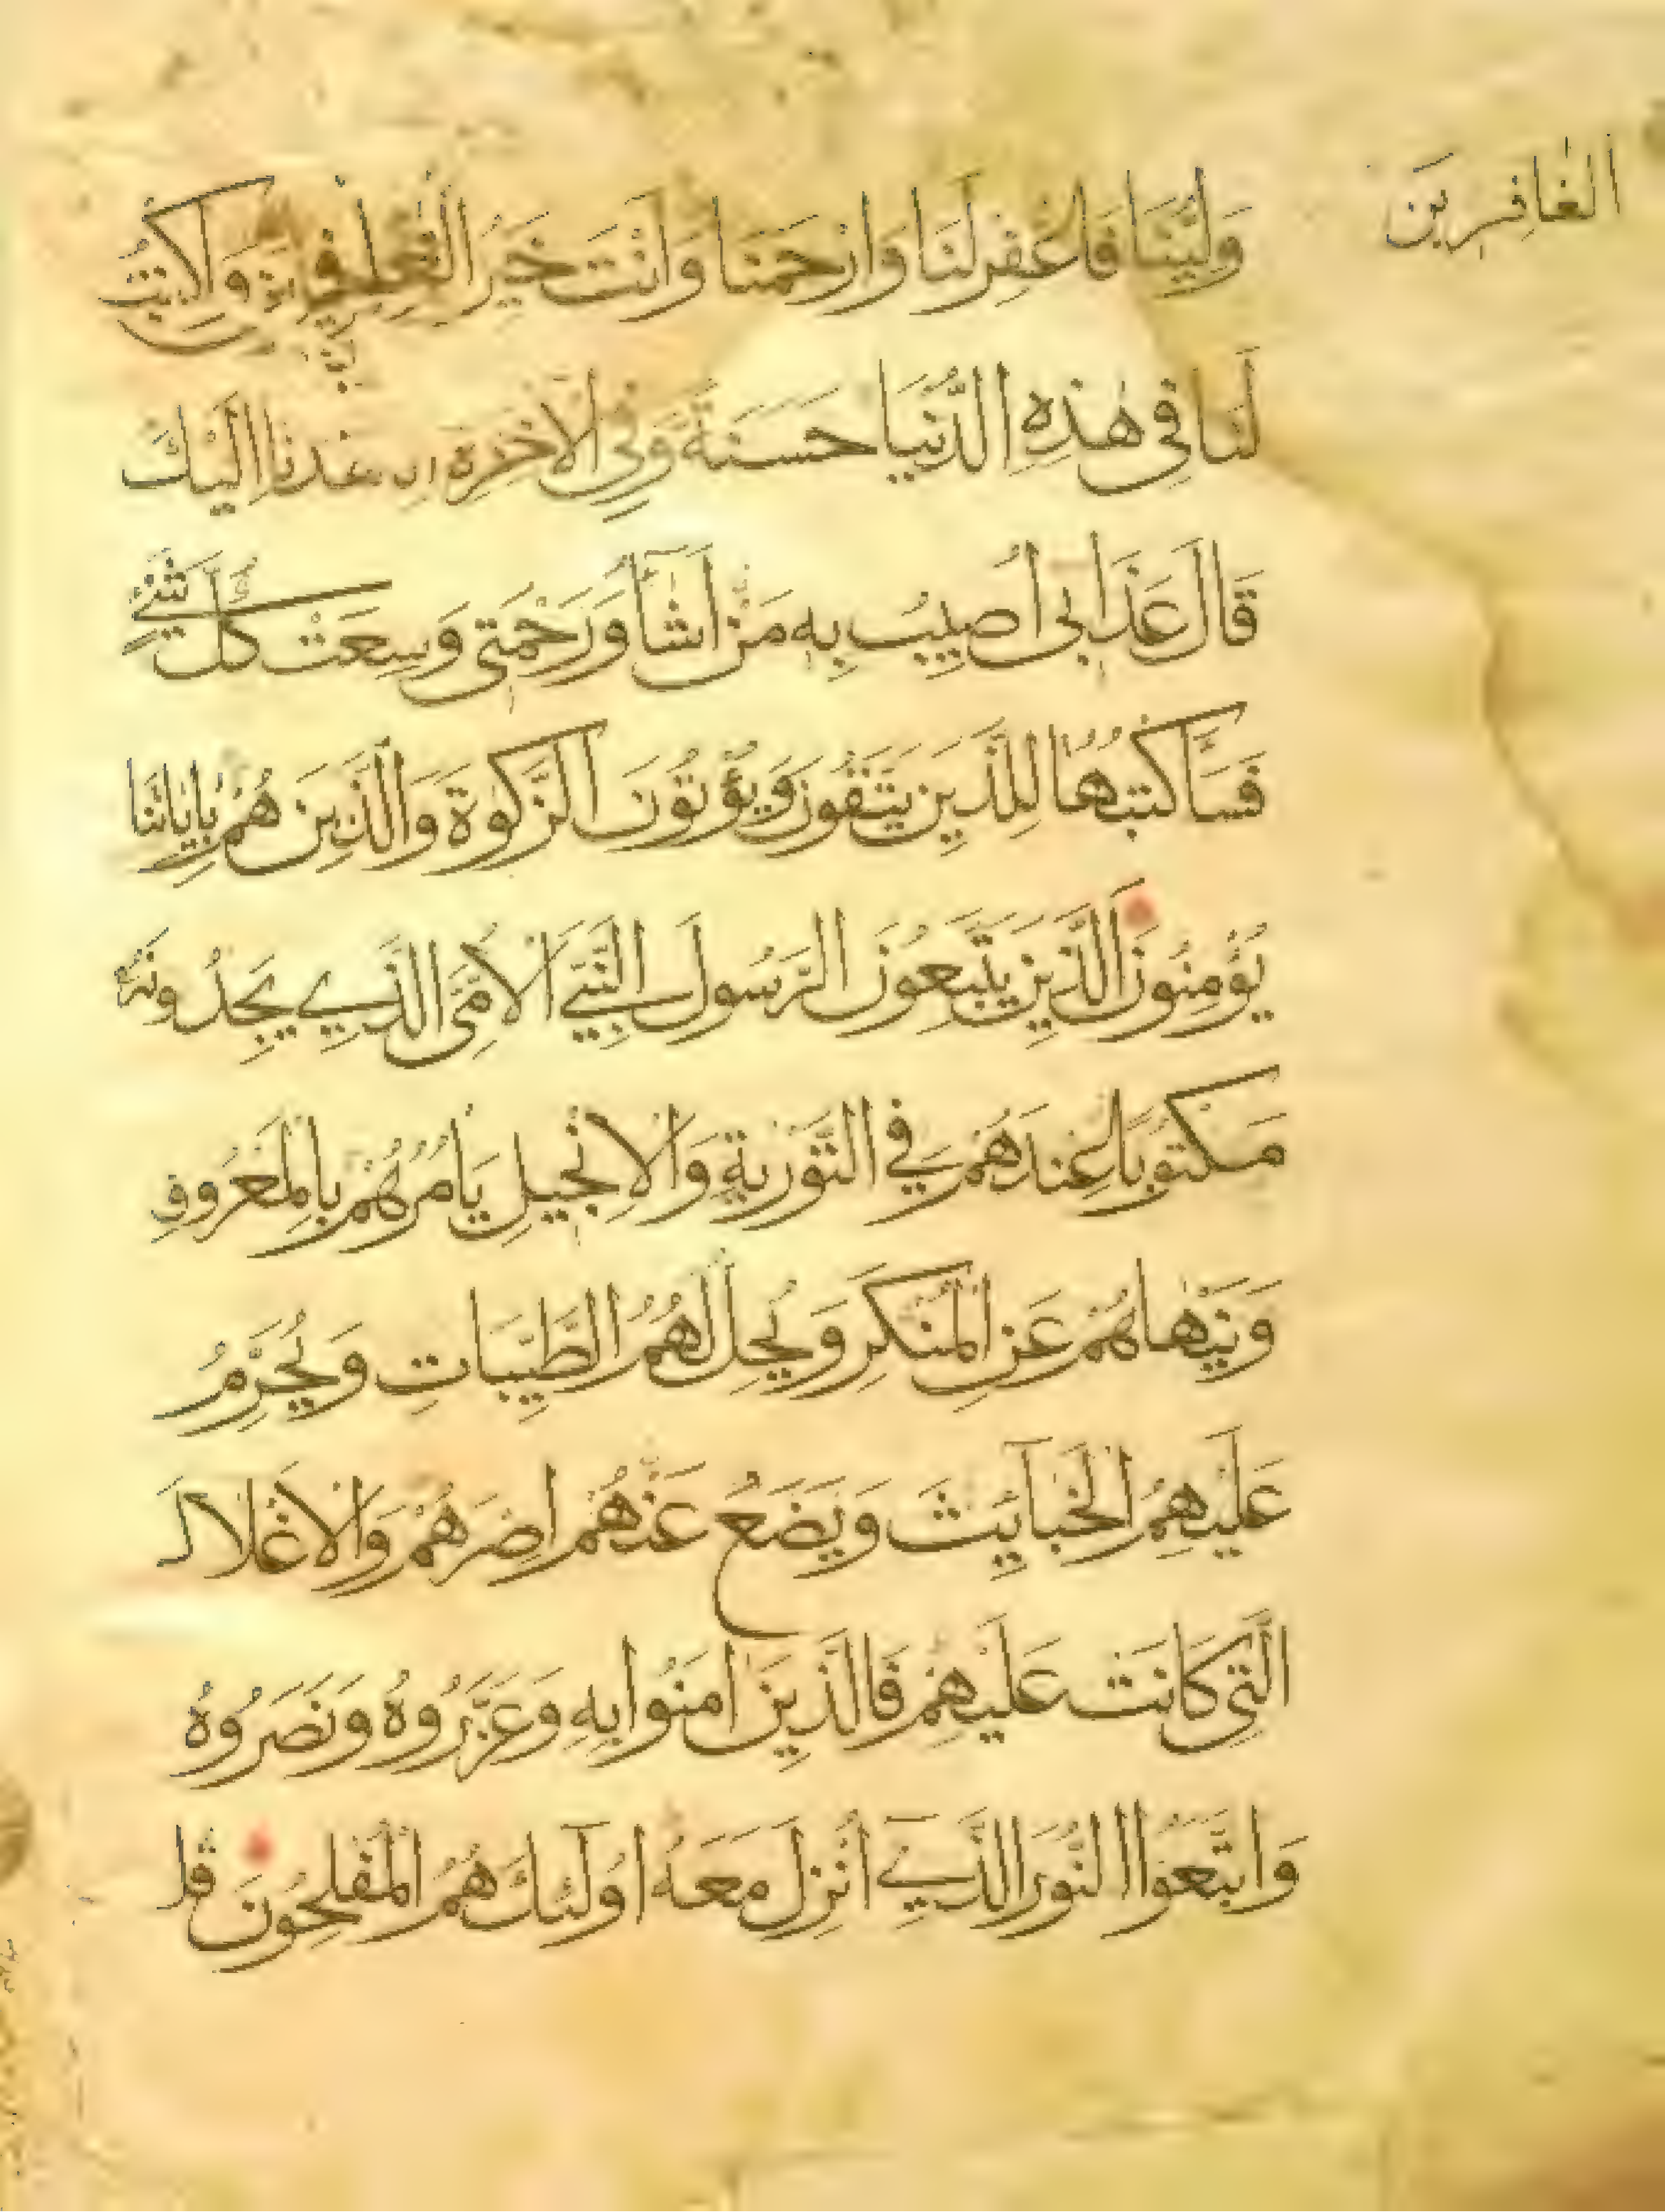 الغافرين
وَلِيُّنَا فَاغْفِرْ لَنَا وَارْحَمْنَا وَأَنْتَ خَيْرُ وَاكْتُبْ
لَنَا فِي هٰذِهِ الدُّنْيَا حَسَنَةً وَفِي الْاٰخِرَةِ اِنَّا هُدْنَا اِلَيْكَ
قَالَ عَذَابِي اُصِيبُ بِهِ مَنْ اَشَآءُ وَرَحْمَتِي وَسِعَتْ كُلَّ شَيْءٍ
فَسَاَكْتُبُهَا لِلَّذِينَ يَتَّقُونَ وَيُؤْتُونَ الزَّكٰوةَ وَالَّذِينَ هُمْ بِاٰيَاتِنَا
يُؤْمِنُونَ الَّذِينَ يَتَّبِعُونَ الرَّسُولَ النَّبِيَّ الْاُمِّيَّ الَّذِي يَجِدُونَهُ
مَكْتُوبًا عِنْدَهُمْ فِي التَّوْرٰيةِ وَالْاِنْجِيلِ يَاْمُرُهُمْ بِالْمَعْرُوفِ
وَيَنْهَاهُمْ عَنِ الْمُنْكَرِ وَيُحِلُّ لَهُمُ الطَّيِّبَاتِ وَيُحَرِّمُ
عَلَيْهِمُ الْخَبَآئِثَ وَيَضَعُ عَنْهُمْ اِصْرَهُمْ وَالْاَغْلَالَ
الَّتِي كَانَتْ عَلَيْهِمْ فَالَّذِينَ اٰمَنُوا بِهِ وَعَزَّرُوهُ وَنَصَرُوهُ
وَاتَّبَعُوا النُّورَ الَّذِي اُنْزِلَ مَعَهُ اُولٰٓئِكَ هُمُ الْمُفْلِحُونَ قُلْ